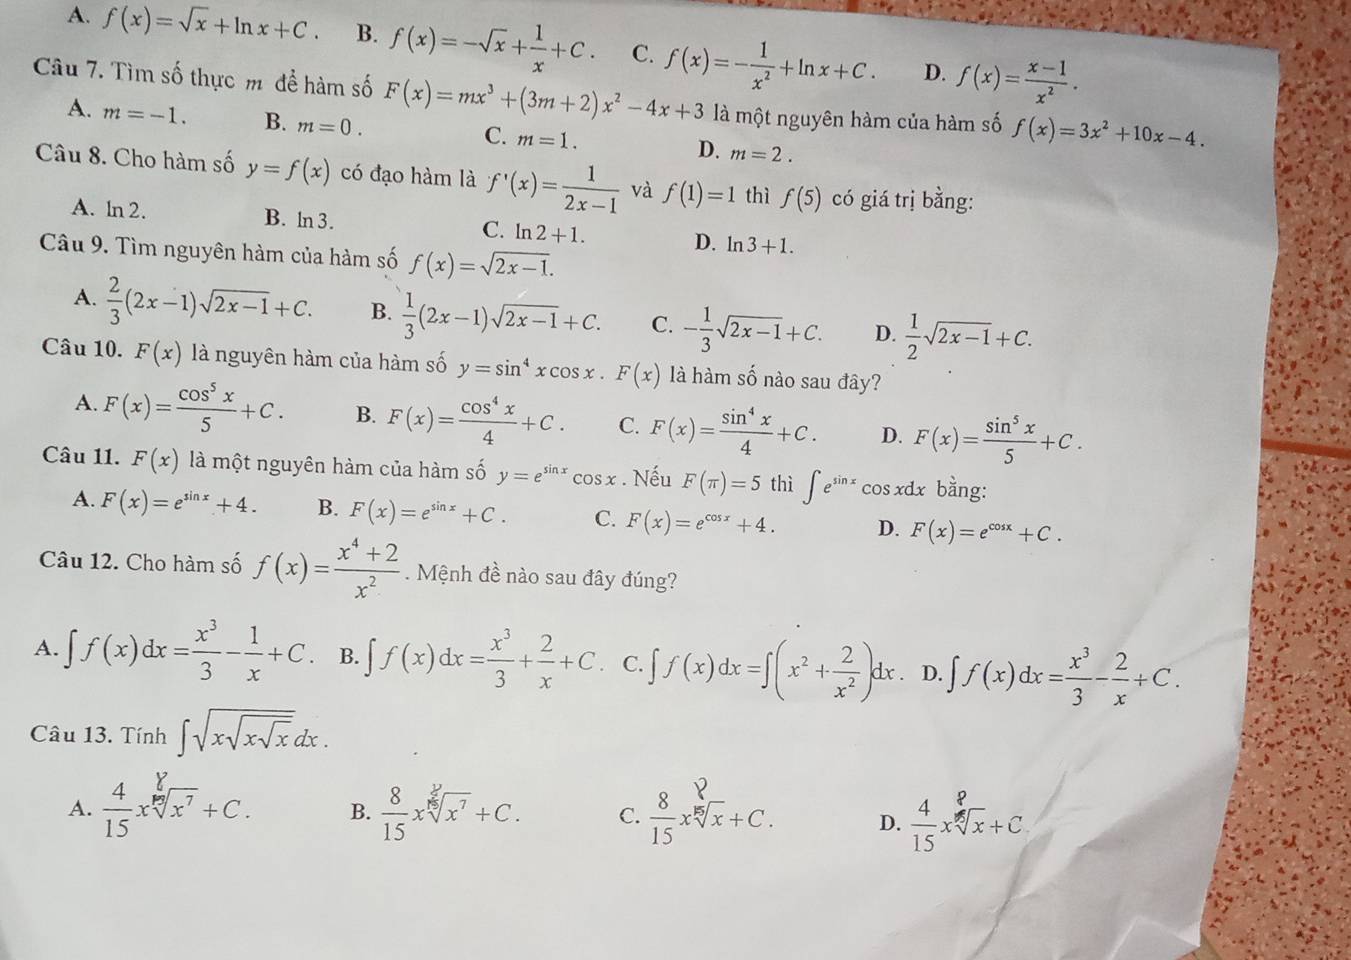 A. f(x)=√x+ln x+C. B. f(x)=-√x+1/x+C. C. f(x)=-1/x²+ln x+C. D. f(x)=(x-1)/x².
Câu 7. Tìm số thực m để hàm số F(x)=mx³+(3m+2)x²-4x+3 là một nguyên hàm của hàm số f(x)=3x²+10x-4.
A. m=-1. B. m=0. C. m=1. D. m=2.
Câu 8. Cho hàm số y=f(x) có đạo hàm là f'(x)=1/(2x-1) và f(1)=1 thì f(5) có giá trị bằng:
A. ln 2. B. ln 3. C. ln 2+1. D. ln 3+1.
Câu 9. Tìm nguyên hàm của hàm số f(x)=√(2x-1).
A. 2/3(2x-1)√(2x-1)+C. B. 1/3(2x-1)√(2x-1)+C. C. -1/3√(2x-1)+C. D. 1/2√(2x-1)+C.
Câu 10. F(x) là nguyên hàm của hàm số y=sin⁴x cos x. F(x) là hàm số nào sau đây?
A. F(x)=cos⁵x/5+C. B. F(x)=cos⁴x/4+C. C. F(x)=sin⁴x/4+C. D. F(x)=sin⁵x/5+C.
Câu 11. F(x) là một nguyên hàm của hàm số y=e^(sin x) cos x. Nếu F(π)=5 thì ∫e^(sin x) cos xdx bằng:
A. F(x)=e^(sin x)+4. B. F(x)=e^(sin x)+C. C. F(x)=e^(cos x)+4. D. F(x)=e^(cosx)+C.
Câu 12. Cho hàm số f(x)=(x⁴+2)/x². Mệnh đề nào sau đây đúng?
A. ∫f(x)dx=x³/3-1/x+C. B. ∫f(x)dx=x³/3+2/x+C. C. ∫f(x)dx=∫(x²+2/x²)dx. D. ∫f(x)dx=x³/3-2/x+C.
Câu 13. Tính ∫√(x√(x√x))dx.
A. 4/15 x ⁸√(x⁷)+C. B. 8/15 x ⁸√(x⁷)+C. C. 8/15 x ⁸√x+C. D. 4/15 x ⁸√x+C